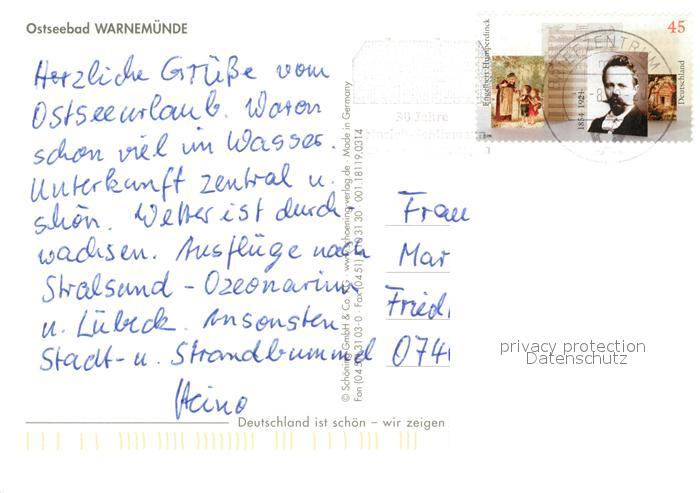 Ostseebad WARNEMÜNDE
Herzliche Grüße vom
Ostseeurlaub. Waren
schon viel im Wasser.
Unterkunft zentral u.
schön. Wetter ist durch-
wachsen. Ausflüge nach
Stralsund - Ozeonarium
u. Lübeck. Ansonsten
Stadt- u. Strandbummel
Heino
Deutschland ist schön – wir zeigen
© Schöning GmbH & Co. KG · www.schoening-verlag.de · Made in Germany
Fon (04 51) 3 10 3-0 · Fax (04 51) 3 10 31 30 · 001.18119.0314
30 Jahre
Engelbert Humperdinck
45
1854 - 1921
Deutschland
BRIEFZENTRUM
Frau
Mar
Fried
074
privacy protection
Datenschutz